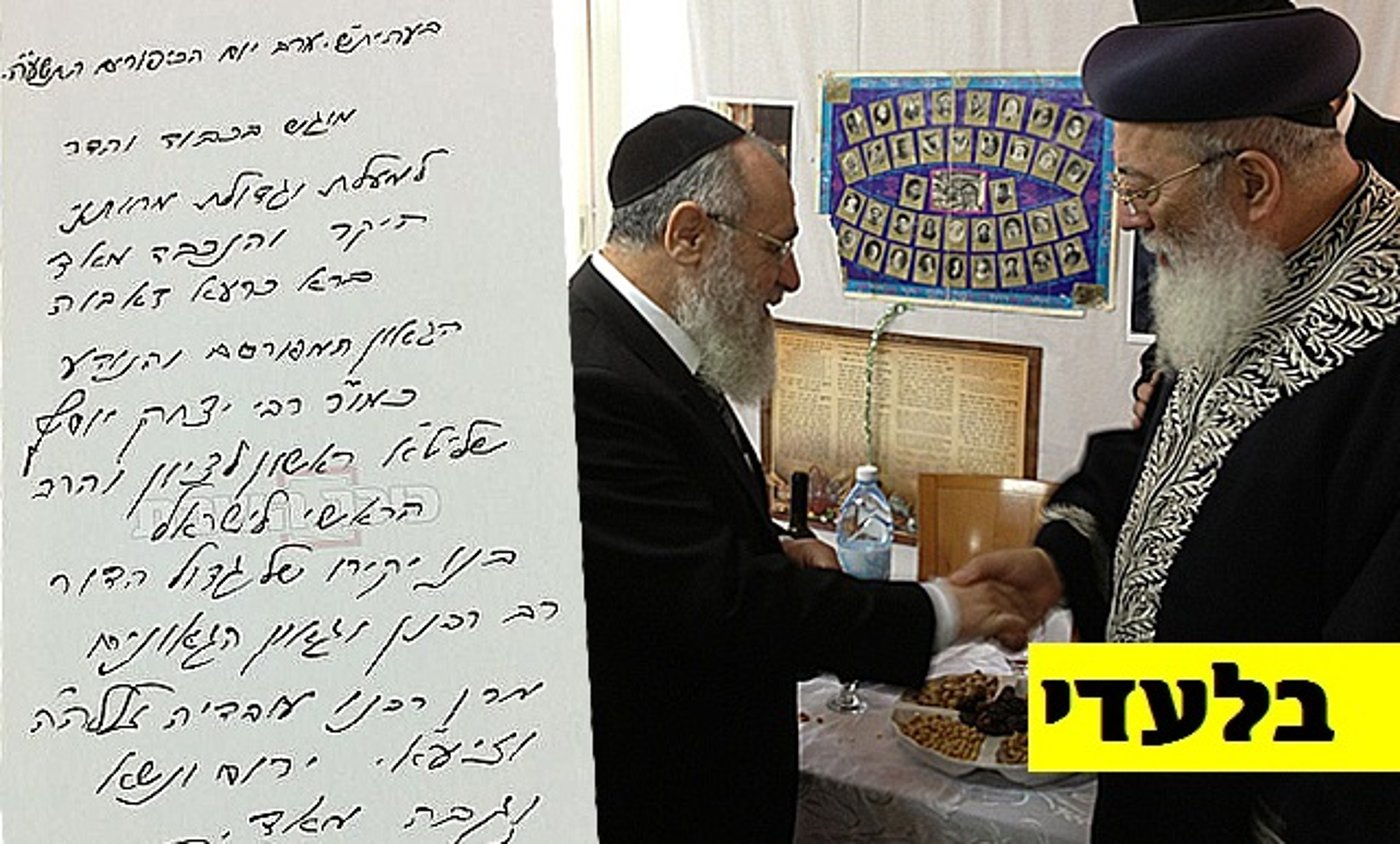 בעהית"ש. ערב יום הכיפורים התשע"ה.
מוגש בכבוד והדר
למעלת וגדולת
היקר והנכבד מאד
ברא כרעא דאבוה
הגאון המפורסם והנודע
כמו"ר רבי יצחק יוסף
שליט"א הראשון לציון והרב
הראשי לישראל
בנו יקירו של גדול הדור
רב רבנן וגאון הגאונים
מרן רבנו עובדיה זללה"ה
וזיע"א. ירום ונשא
וגבה מאד
בלעדי